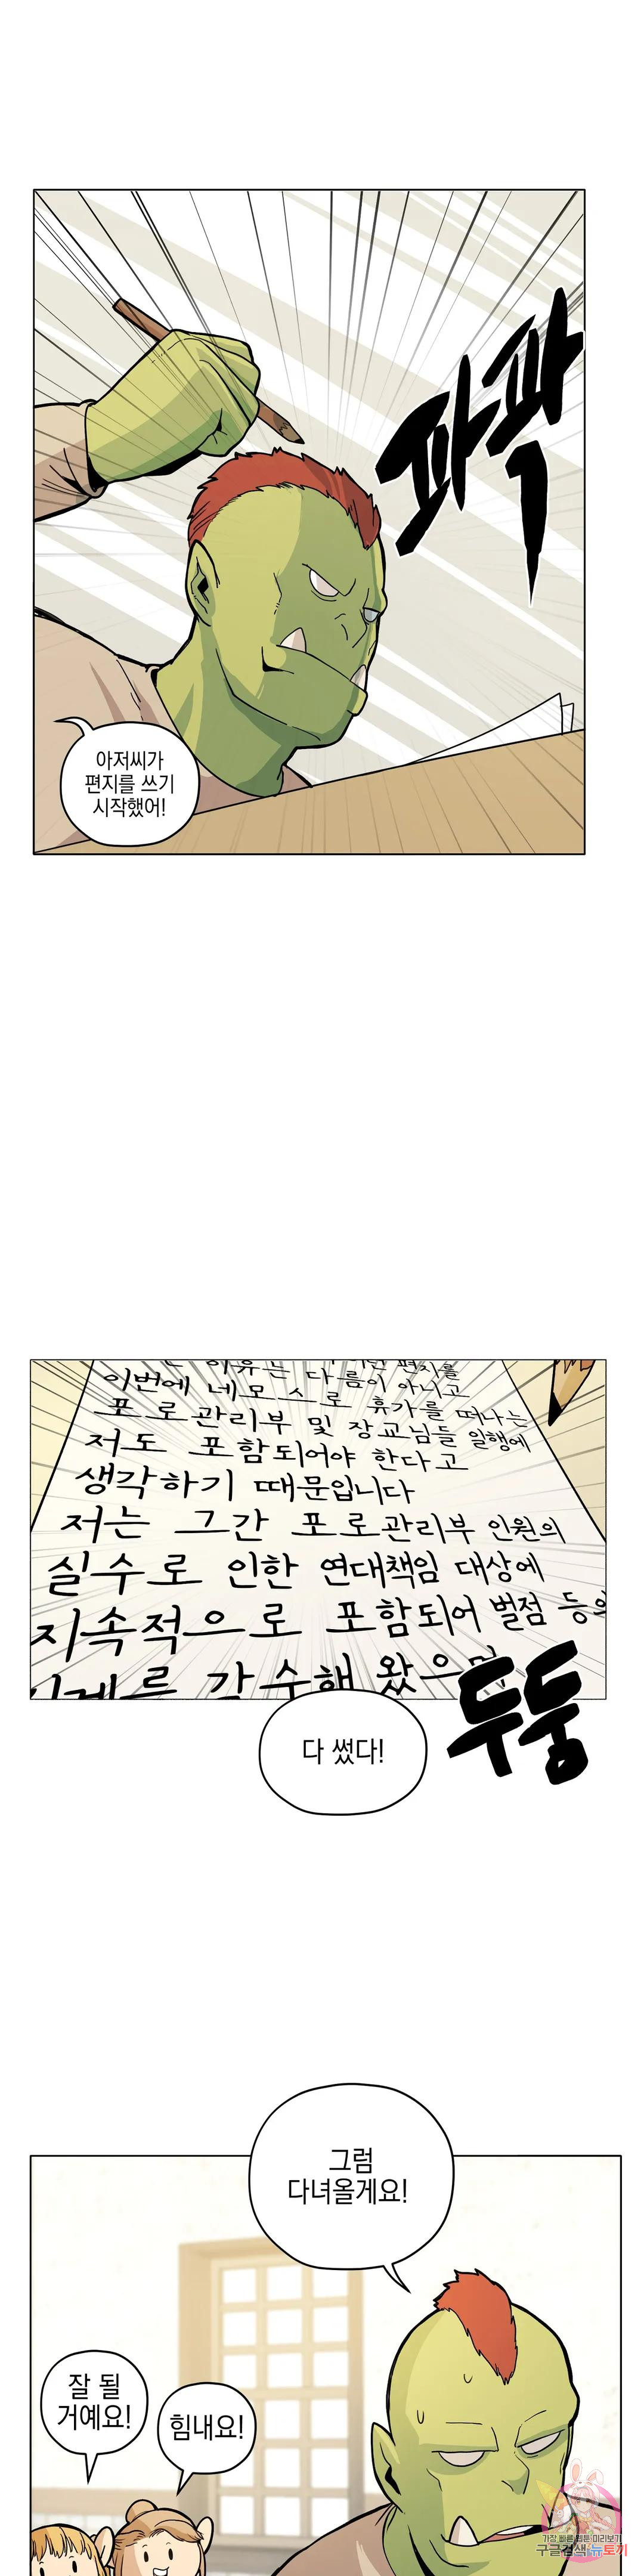 파파
팍
아저씨가
편지를 쓰기
시작했어!
이유는
편지를
이번에 네모스로 다름이 아니고
포로관리부 및 휴가를 떠나는
장교님들 일행에
저도 포함되어야 한다고
생각하기 때문입니다
저는 그간 포로관리부 인원의
실수로 인한 연대책임 대상에
지속적으로 포함되어 벌점 등의
왔으며
다 썼다!
두둥
그럼
다녀올게요!
잘 될
거예요!
힘내요!
가장 빠른 웹툰 미리보기
구글검색 뉴토끼